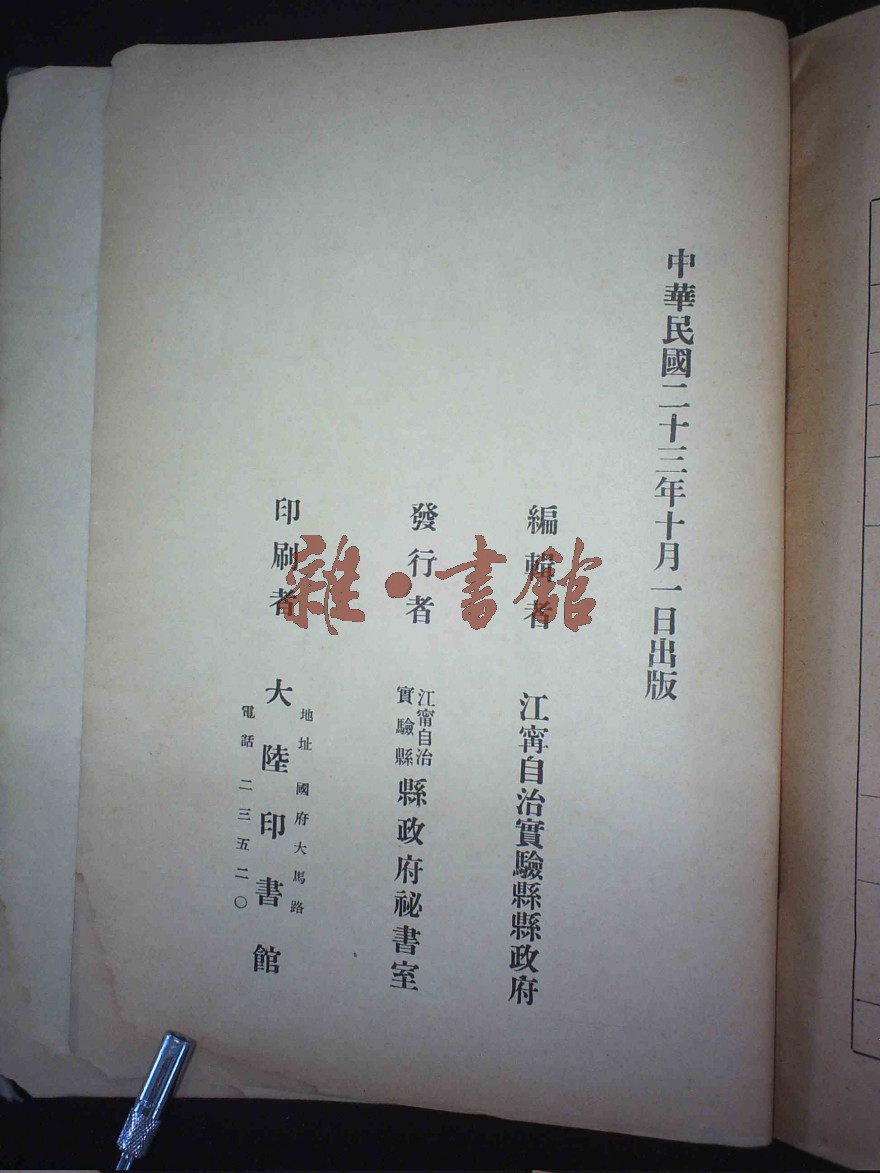 中華民國二十三年十月一日出版
編輯者 江甯自治實驗縣縣政府
發行者 江甯自治實驗縣 縣政府祕書室
印刷者 大陸印書館
地址 國府大馬路
電話 二三五二〇
雜·書館